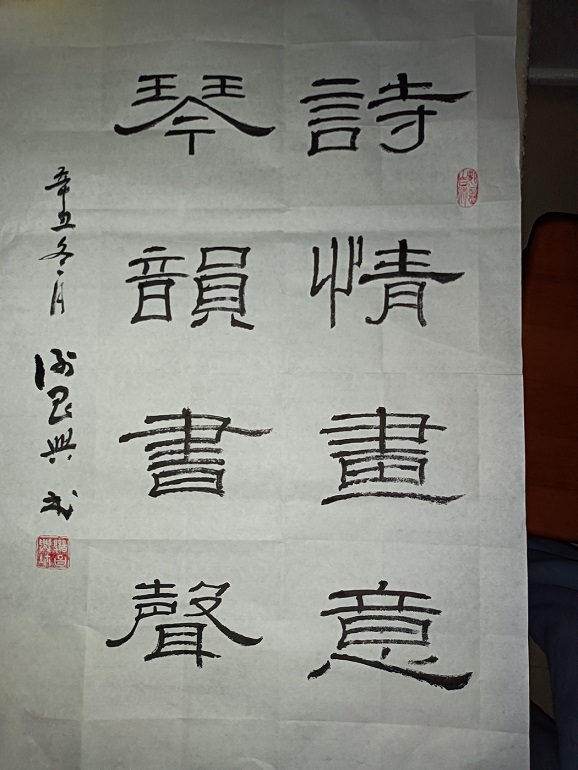 詩情畫意
琴韻書聲
辛丑冬月
興